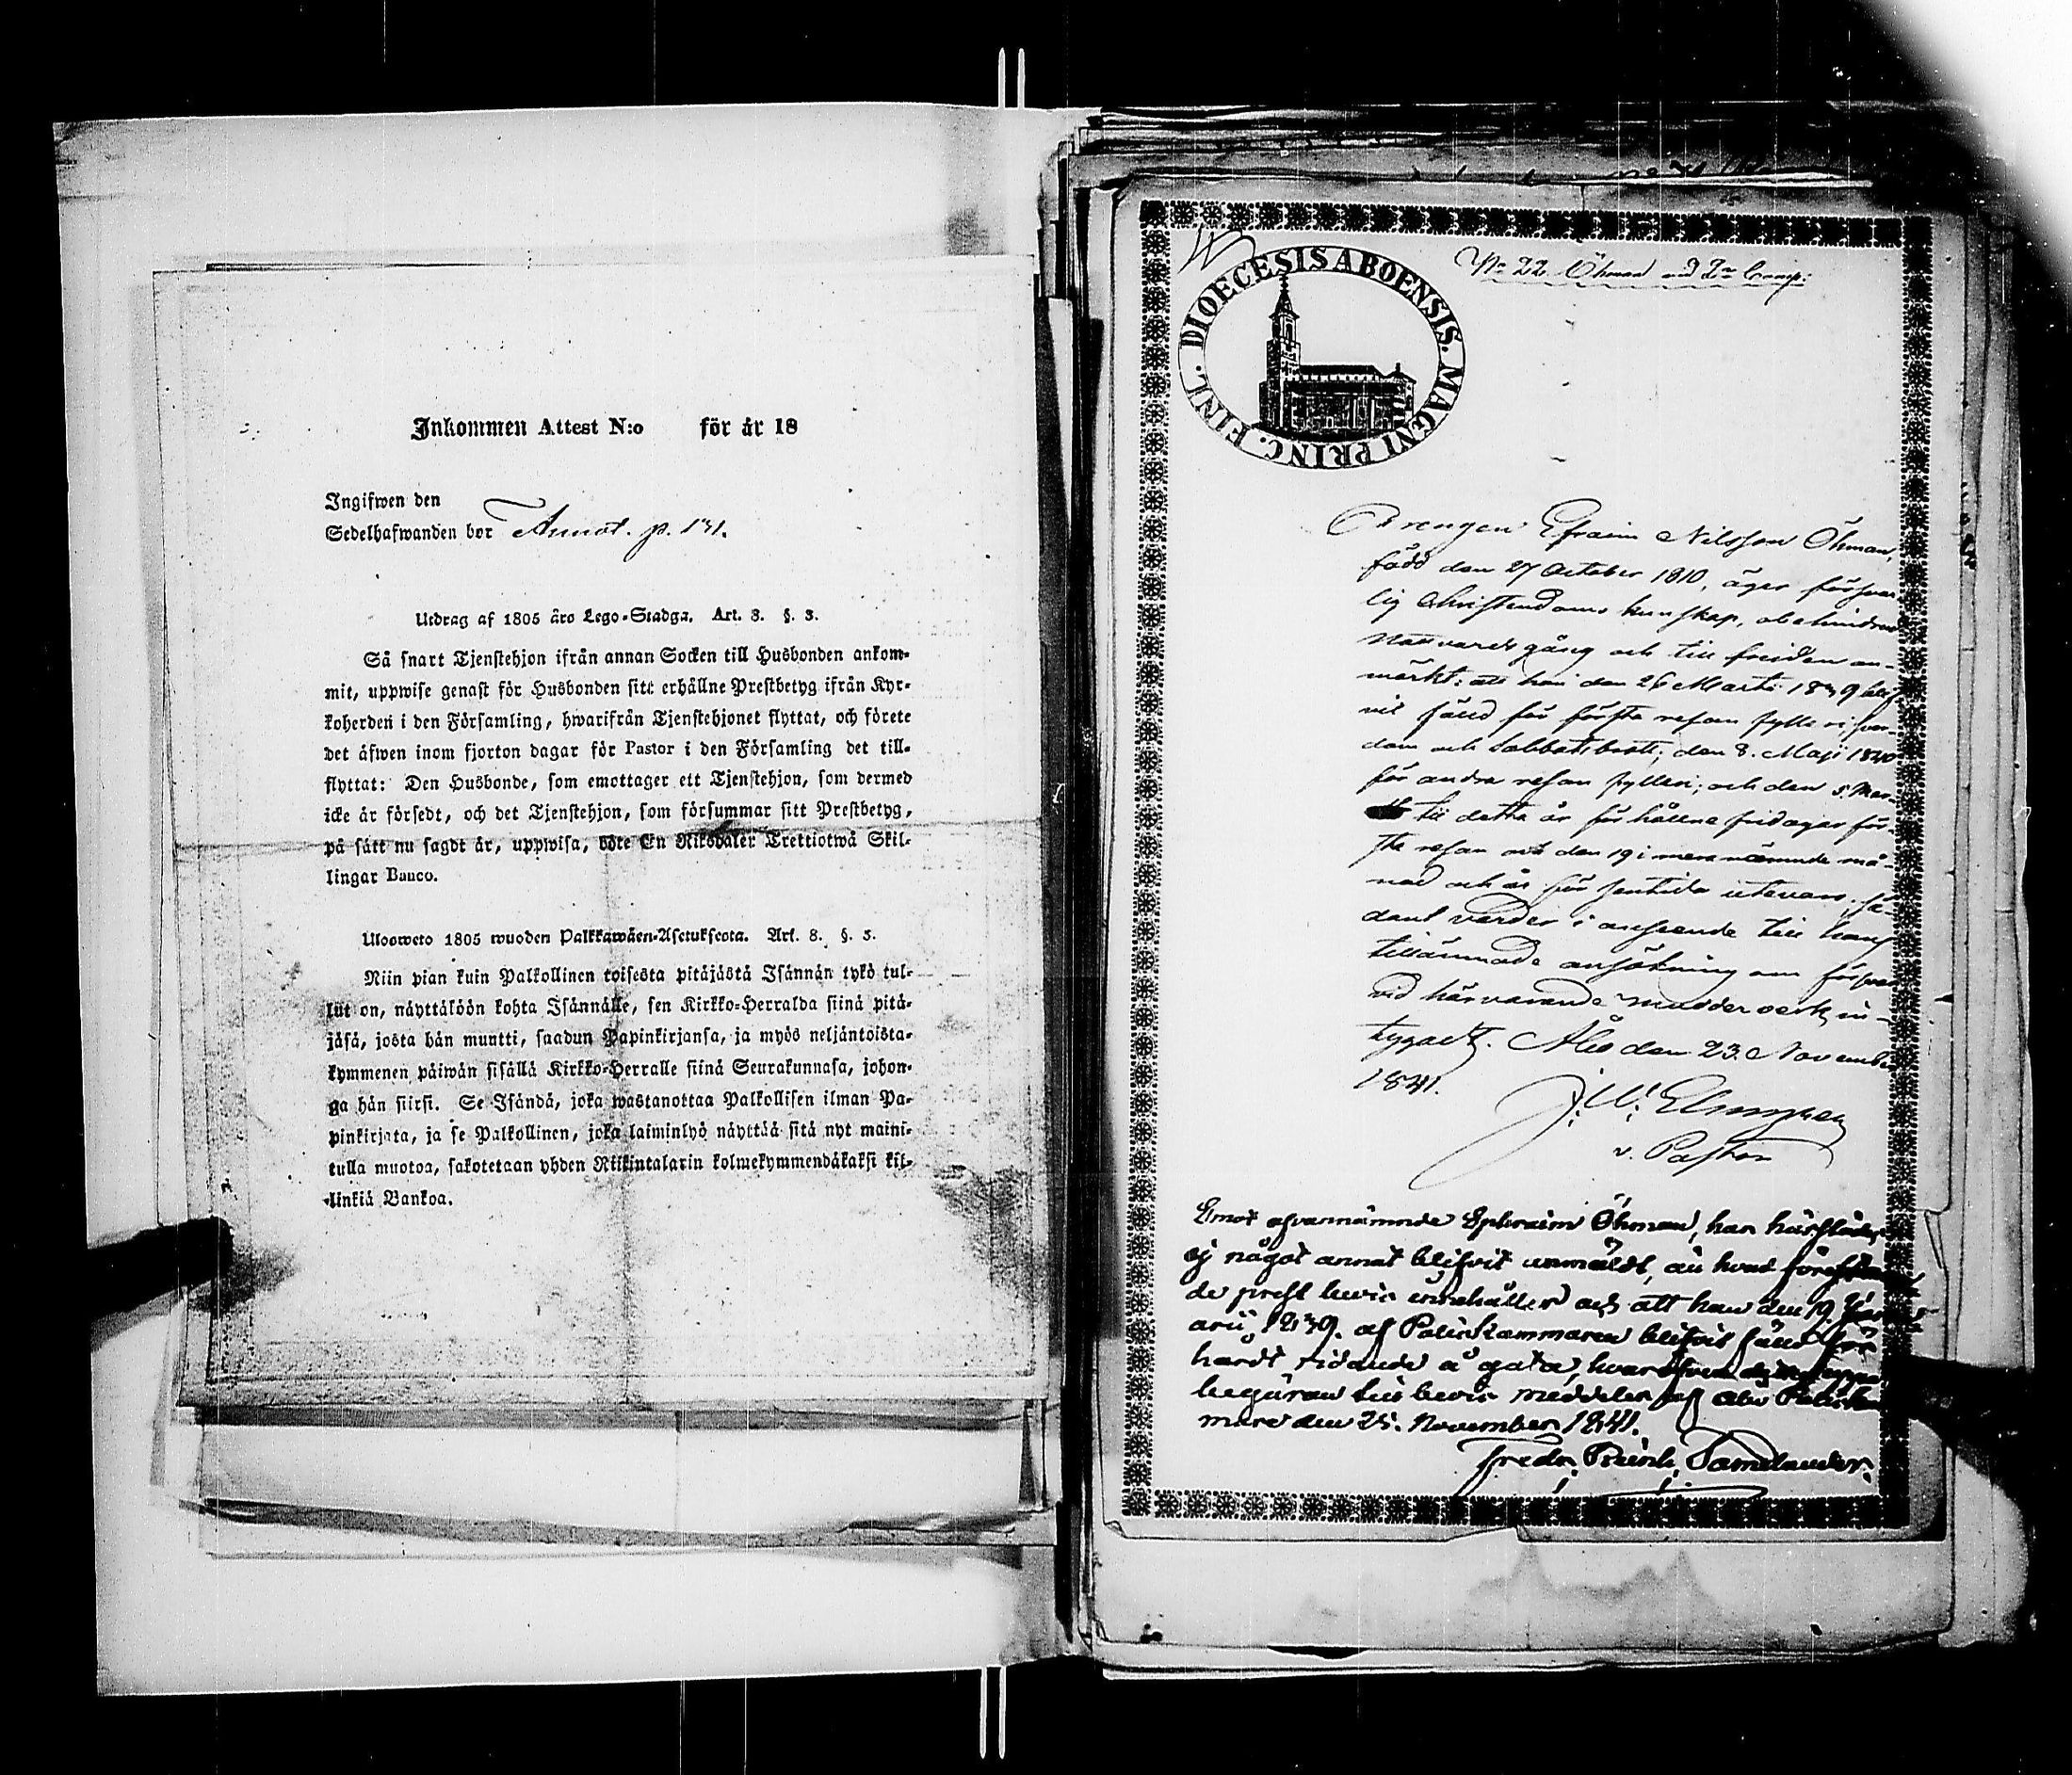 Inkommen Attest N:o för år 18
Ingifwen den
Sedelhafwanden bor Annot. p. 131.
Utdrag af 1805 års Lego-Stadga. Art. 8. §. 3.
Så snart Tjenstehjon ifrån annan Socken till Husbonden ankom-
mit, uppwise genast för Husbonden sitt erhållne Prestbetyg ifrån Kyr-
koherden i den Församling, hwarifrån Tjenstehjonet flyttat, och förete
det äfwen inom fjorton dagar för Pastor i den Församling det till-
flyttat: Den Husbonde, som emottager ett Tjenstehjon, som dermed
icke är försedt, och det Tjenstehjon, som försummar sitt Prestbetyg,
på sätt nu sagdt är, uppwisa, böte En Riksdaler Trettiotwå Skil-
lingar Banco.
Uloosweto 1805 wuoden Palkkawäen-Asetuksesta. Art. 8. §. 3.
Niin pian kuin Palkollinen toisesta pitäjästä Isännän tykö tul-
lut on, näyttäköön kohta Isännälle, sen Kirkko-Herralda siinä pitä-
jäsä, josta hän muutti, saadun Papinkirjansa, ja myös neljäntoista-
kymmenen päiwän sisällä Kirkko-Herralle siinä Seurakunnasa, johon-
ga hän siirsi. Se Isändä, joka wastanottaa Palkollisen ilman Pa-
pinkirjata, ja se Palkollinen, joka laiminlyö näyttää sitä nyt maini-
tulla muotoa, sakotetaan yhden Riikintalarin kolmekymmendäkaksi kil-
linkiä Bankoa.
No 22 Öhman vid 2n Comp:
DIOECESIS ABOENSIS. MAGNI PRINC. FINL.
Drengen Efraim Nilsson Öhman,
född den 27 October 1810, äger försvar-
lig Christendoms kunskap, obehindrad
nattvardsgång och till freiden an-
märkt: att han den 26 Martii 1839 blif-
vit fälld för första resan fylleri, svor-
dom och Sabbatsbrott; den 8. Maji 1840
för andra resan fylleri; och den 5 Mar-
tii detta år för hållne fridagar för-
sta resan och den 19 i mera nämnde må-
nad och år för sentida utevaro; så-
dant varder i anseende till hans
tillämnade ansökning om försvar
vid härvarande mudderverk in-
tygadt. Åbo den 23. November
1841.
v. Pastor
Emot ofvannämnde Ephraim Öhman, har härstädes
ej något annat blifvit anmäldt, än hvad
de prest bevis innehåller och att han den 19.
arii 1839. af Poliskammaren blifvit fälld för
hårdt ridande å gata,
begäran till bevis meddelas af Åbo
mare den 25. November 1841.
Fredr.